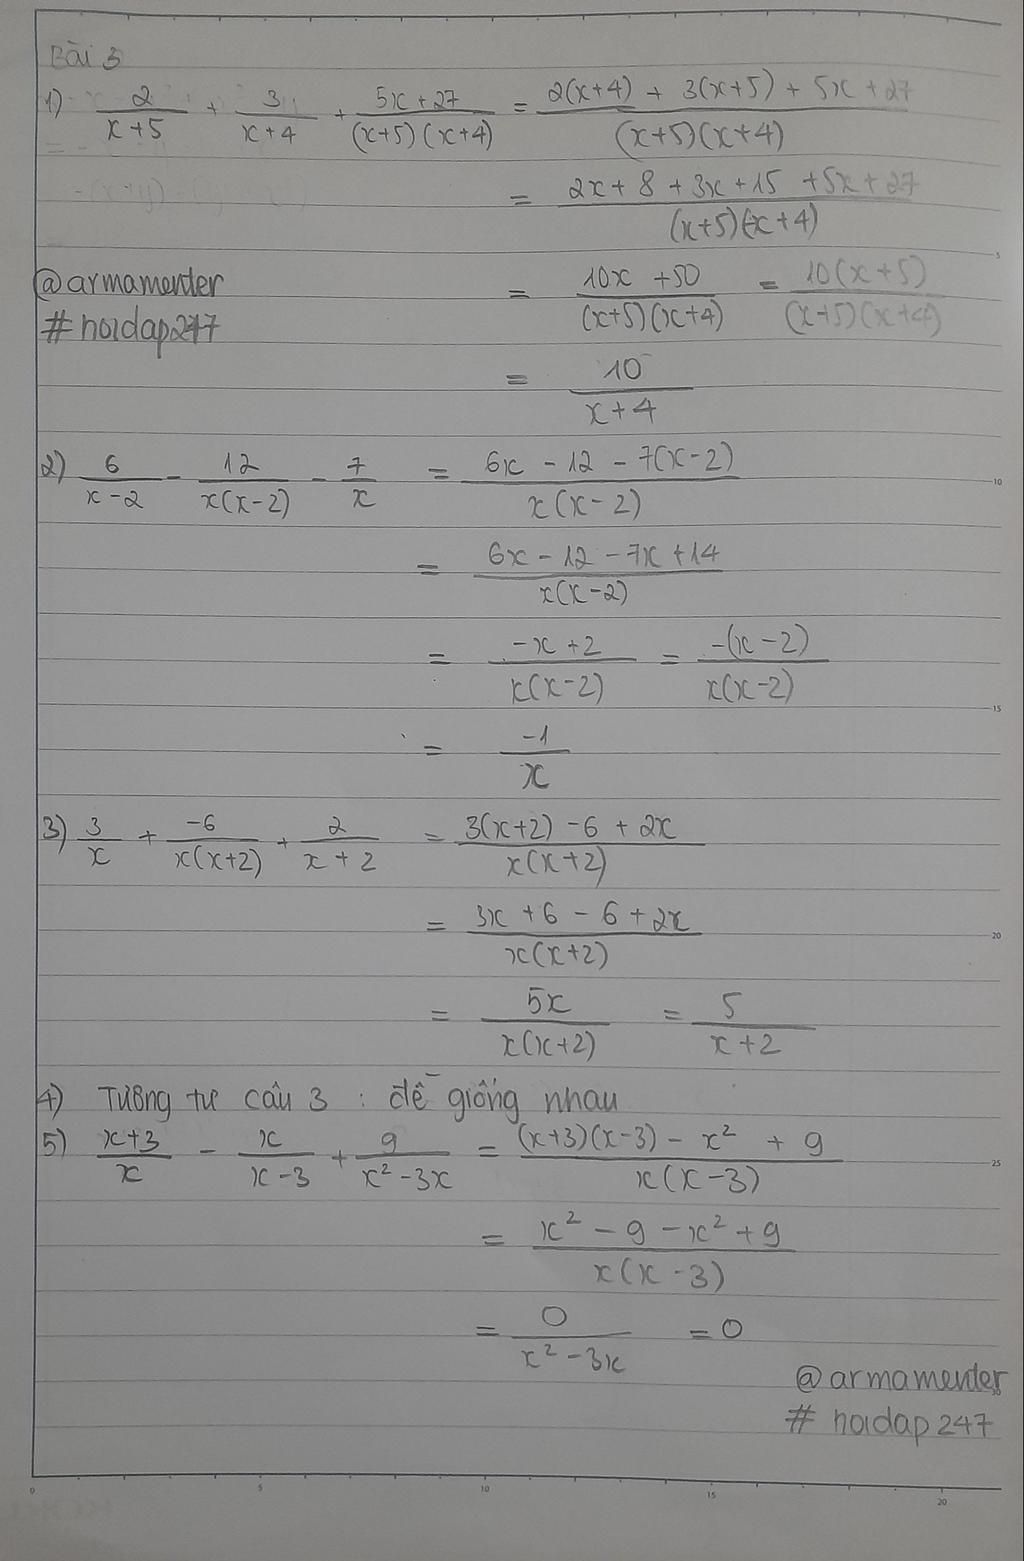 Bài 3
1) 2/(x+5) + 3/(x+4) + (5x+27)/((x+5)(x+4)) = (2(x+4) + 3(x+5) + 5x+27)/((x+5)(x+4))
= (2x+8+3x+15+5x+27)/((x+5)(x+4))
@armamenter
#hoidap247
= (10x+50)/((x+5)(x+4)) = 10(x+5)/((x+5)(x+4))
= 10/(x+4)
2) 6/(x-2) - 12/(x(x-2)) - 7/x = (6x-12-7(x-2))/(x(x-2))
= (6x-12-7x+14)/(x(x-2))
= (-x+2)/(x(x-2)) = -(x-2)/(x(x-2))
= -1/x
3) 3/x + -6/(x(x+2)) + 2/(x+2) = (3(x+2)-6+2x)/(x(x+2))
= (3x+6-6+2x)/(x(x+2))
= 5x/(x(x+2)) = 5/(x+2)
4) Tương tự câu 3 : đề giống nhau
5) (x+3)/x - x/(x-3) + 9/(x²-3x) = ((x+3)(x-3) - x² + 9)/(x(x-3))
= (x²-9-x²+9)/(x(x-3))
= 0/(x²-3x) = 0
@armamenter
#hoidap247
5
10
15
20
25
30
0 5 10 15 20